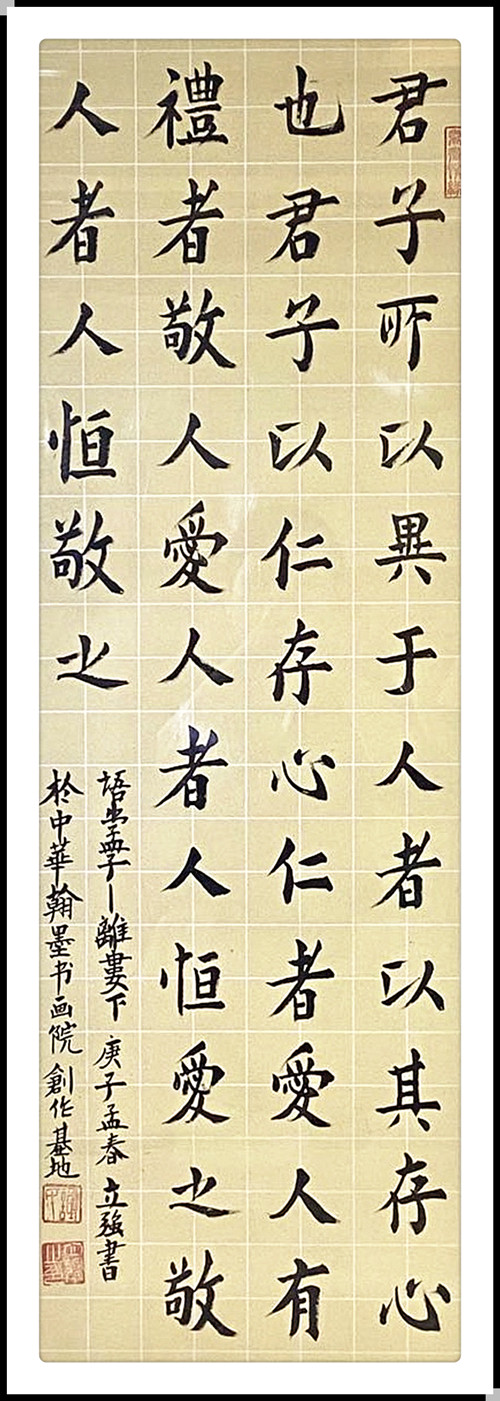 君子所以異于人者以其存心
也君子以仁存心仁者愛人有
禮者敬人愛人者人恒愛之敬
人者人恒敬之
語出孟子一離婁下 庚子孟春 立強書
於中華翰墨书画院創作基地